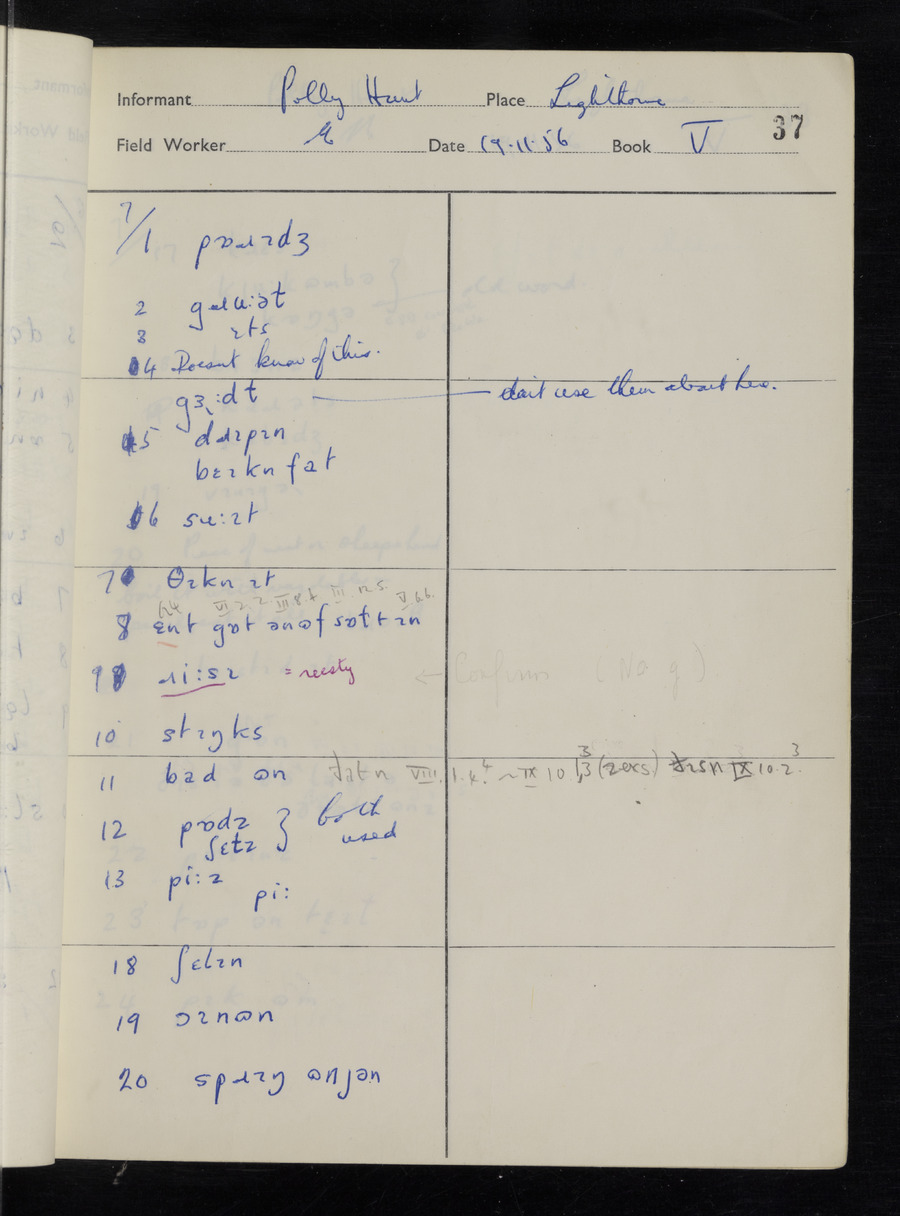 Informant Polly Hunt Place Lighthorne
Field Worker Date 19.11.56 Book V 37
7/1 pɒɹɪdʒ
2
3 ɪts
4 Doesnt know of this.
gɜ˞:dt don't use them about here.
5 dɹɪpɪn
beɪkn fat
6 su:ɪt
7 θɪkn ɪt
8 ɛnt gɒt ənɷf sɒtt ɪn
9 ɹi:sɪ = reesty ← Confirm (No g)
10 stɪŋks
11 bad ɷn
12 pɒdz } both
ʃɛtz used
13 pi:z
pi:
18 ʃɛlɪn
19 ɔɪnɷn
20 spɹɪŋ ɷnjən